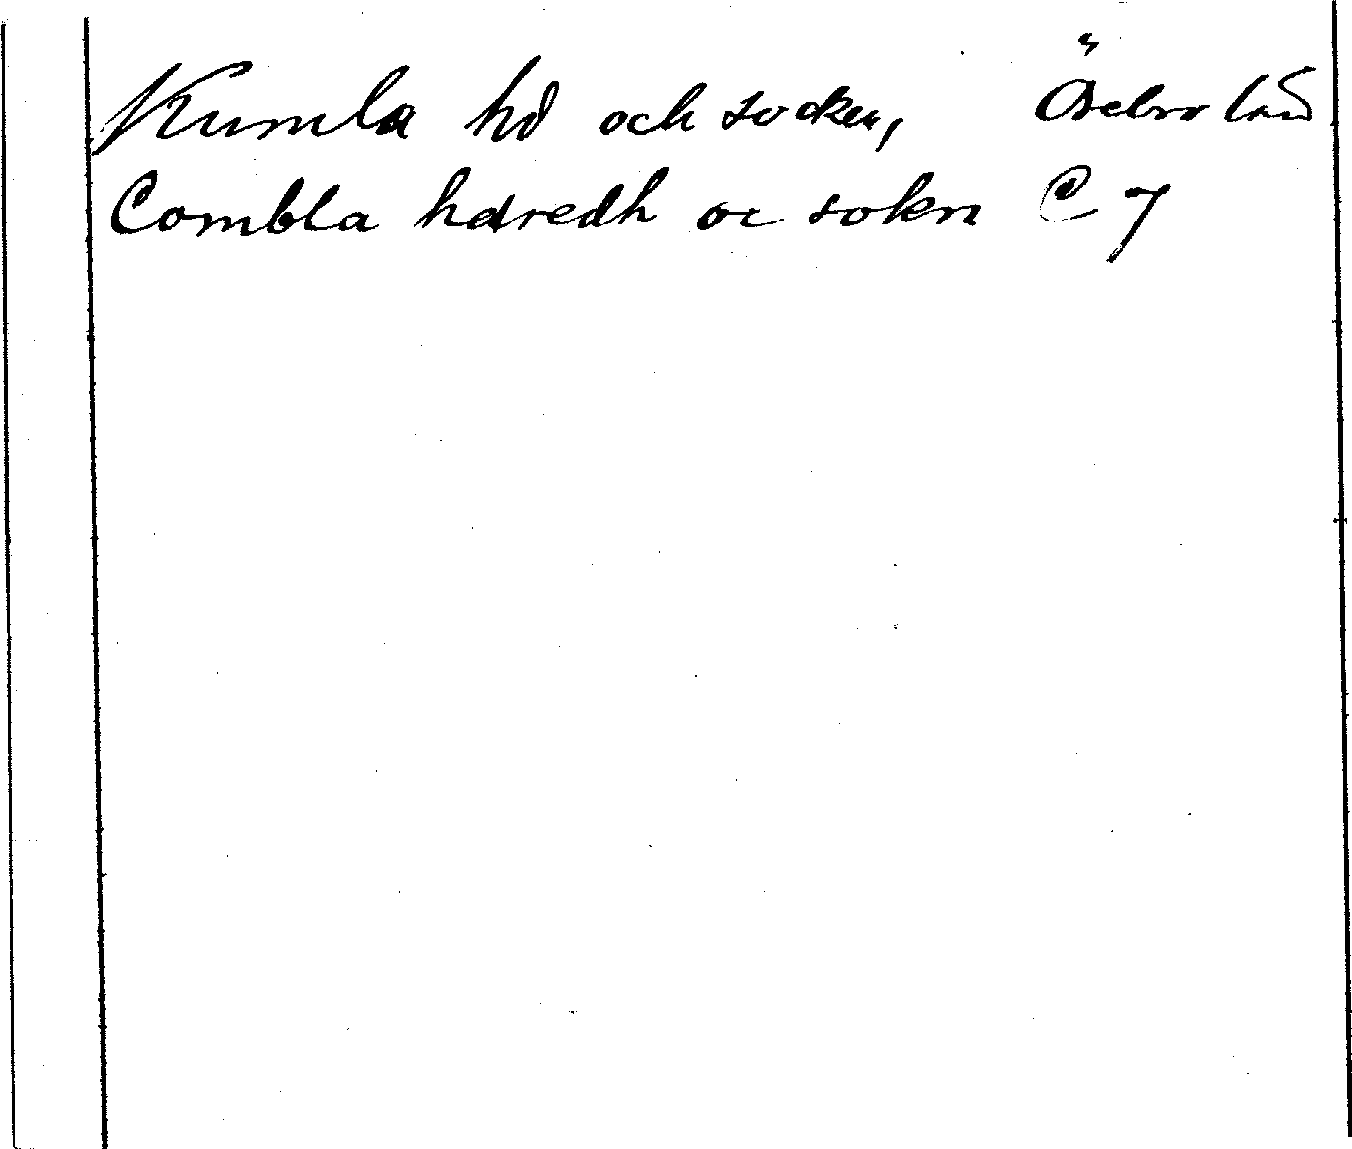 Kumla hd och socken, Örebro län
Combla hæredh oc sokn C 7